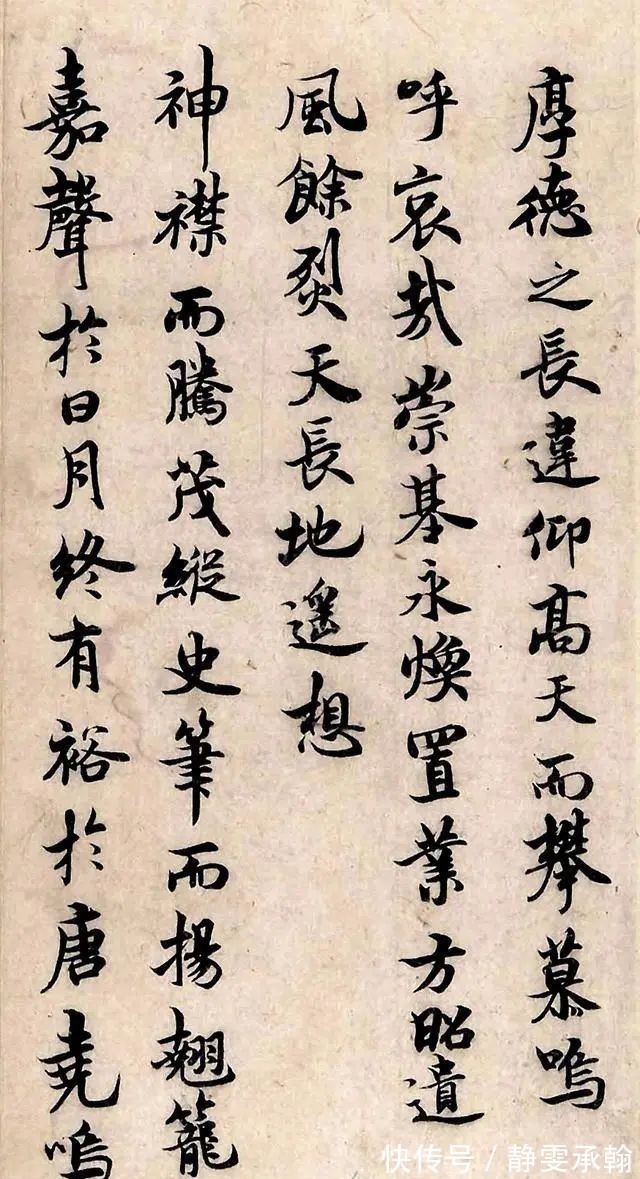 厚德之長違仰高天而攀慕嗚
呼哀哉崇基永煥置業方昭遺
風餘烈天長地遙想
神襟而騰茂縱史筆而揚翹籠
嘉聲於日月終有裕於唐堯嗚
快传号/静雯承翰